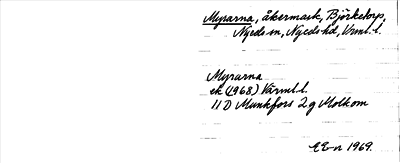 Myrarna, åkermark, Björketorp,
Nyeds sn, Nyeds hd, Vrml. l.
Myrarna
ek (1968) Värml. l.
11 D Munkfors 2 g Molkom
EE-n 1969.